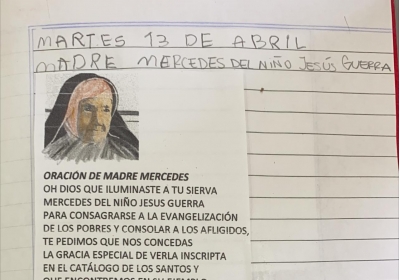 MARTES 13 DE ABRIL
MADRE MERCEDES DEL NIÑO JESÚS GUERRA
ORACIÓN DE MADRE MERCEDES
OH DIOS QUE ILUMINASTE A TU SIERVA
MERCEDES DEL NIÑO JESUS GUERRA
PARA CONSAGRARSE A LA EVANGELIZACIÓN
DE LOS POBRES Y CONSOLAR A LOS AFLIGIDOS,
TE PEDIMOS QUE NOS CONCEDAS
LA GRACIA ESPECIAL DE VERLA INSCRIPTA
EN EL CATÁLOGO DE LOS SANTOS Y
QUE ENCONTREMOS EN SU EJEMPLO